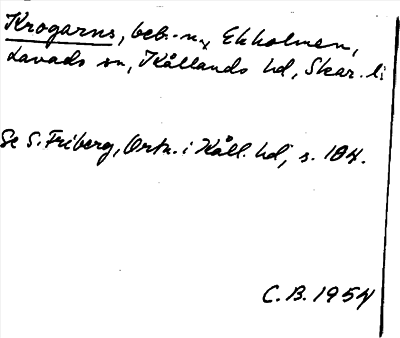 Krogarns, beb.-n., Ekholmen,
Lavads sn, Kållands hd, Skar. l:
Se S. Friberg, Ortn. i Kåll. hd, s. 184.
C. B. 1954